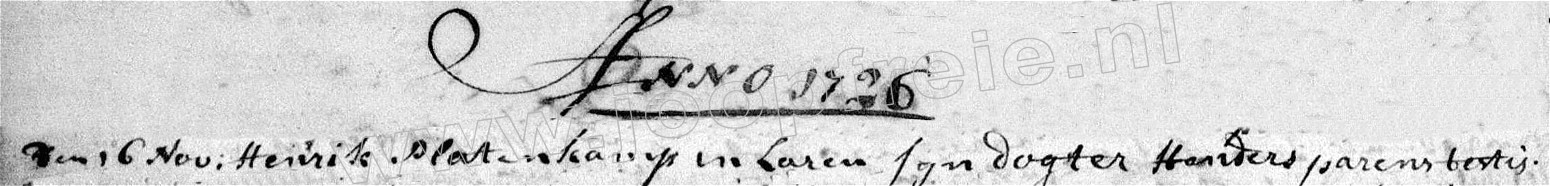 ANNO 1726
Den 16 Nov: Henrik Platenkamp in Laren syn dogter Henders parens testis.
www.loopfreie.nl